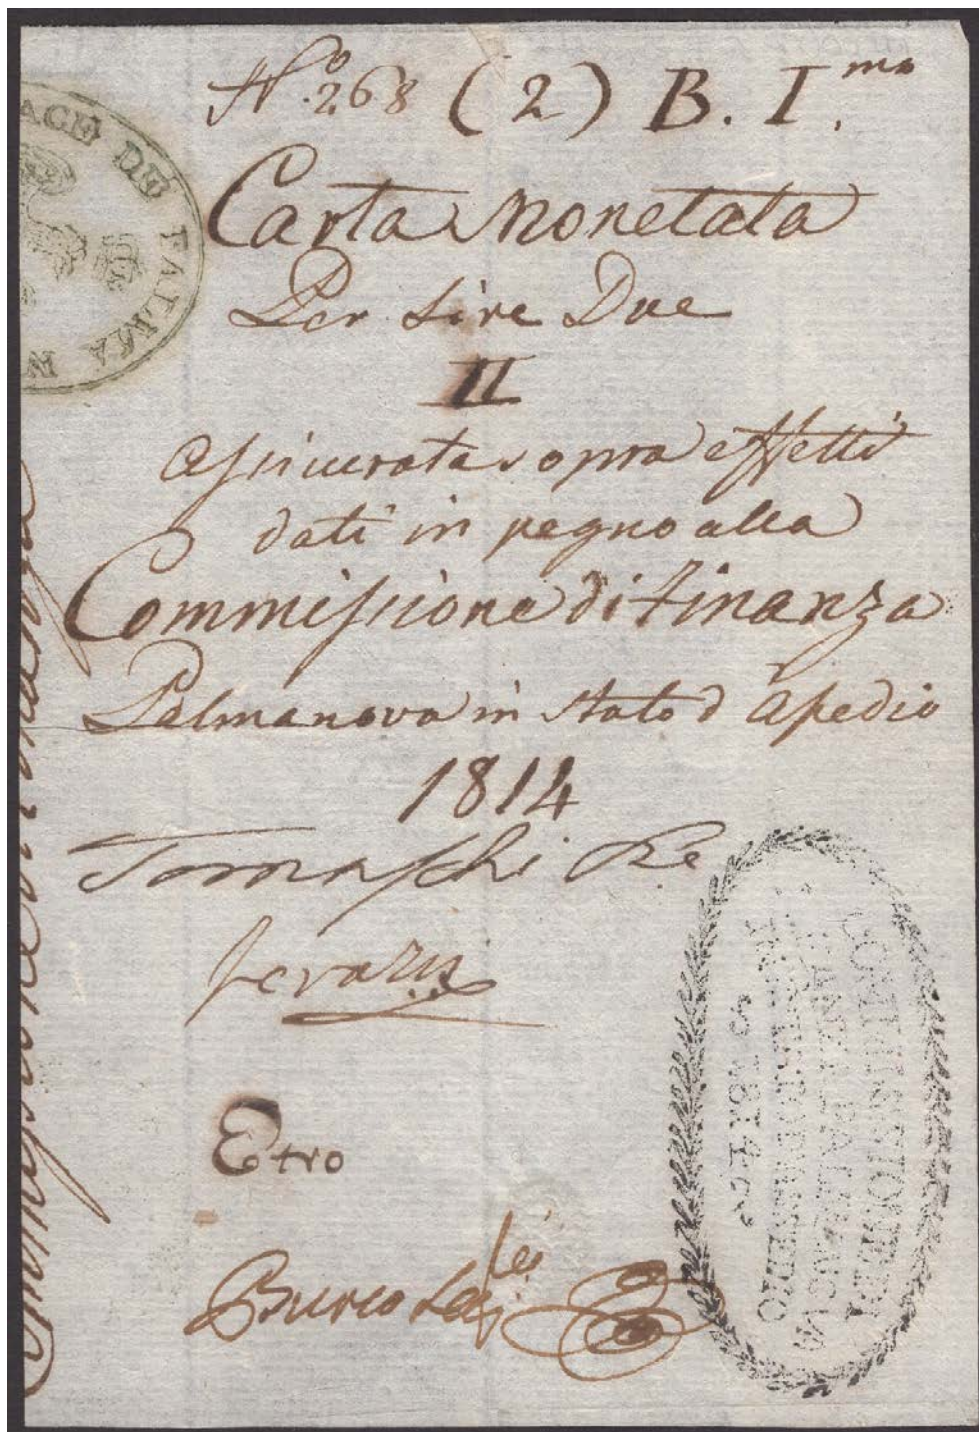 N.º 268 (2) B. I.mo
Carta Monetata
Per Lire Due
II
assicurata sopra effetti
dati in pegno alla
Commissione di Finanza
Palmanova in stato d'assedio
1814
Tomaschi Re
Ferazzi
Etro
PLACE DE PALMA
COMMISSIONE DI
FINANZA PALMANOVA
IN ISTATO D'ASSEDIO
1814